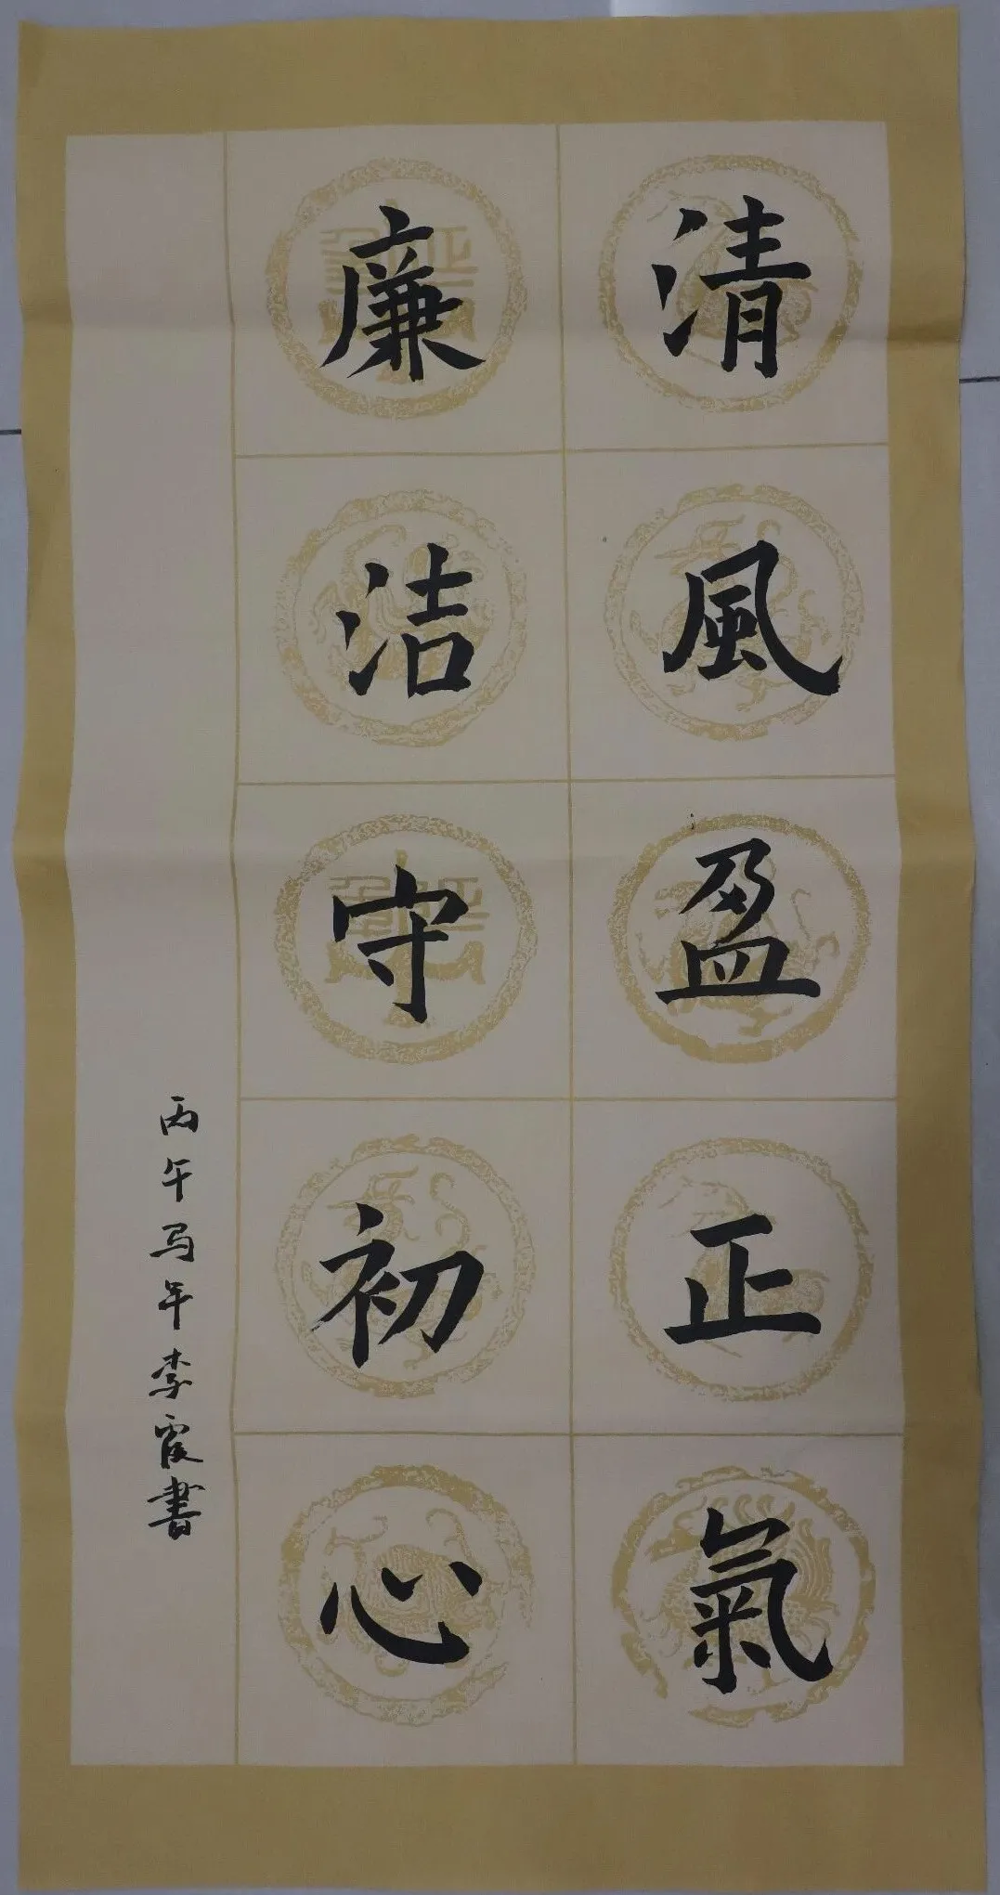 清風盈正氣
廉洁守初心
丙午马年李霞書